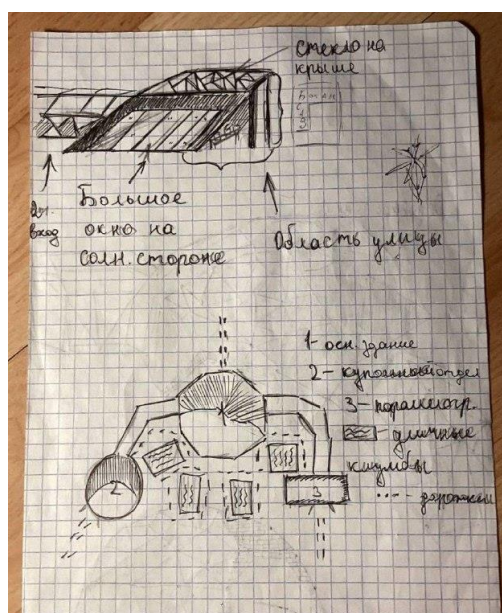 стекло на
крыше
вход
Большое
окно на
солн. стороне
Область улицы
1- осн. здание
2- купольный отдел
3- параллеогр.
- уличные
клумбы
--- - дорожки
2
3